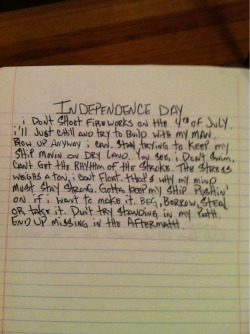 INDEPENDENCE DAY
i DON'T SHOOT FiREWORKS ON THE 4TH OF JULY.
i'll JUST CHill AND TRY TO BUilD WITH MY MAN.
BLOW UP ANYWAY i CAN. STAY TRYING TO KEEP MY
SHiP MOVIN ON DRY LAND. YOU SEE, i DON'T SWIM,
CAN'T GET THE RHYTHM OF THE STROKE. THE STRESS
WEIGHS A TON, i CAN'T FLOAT. THAT'S WHY MY MIND
MUST STAY STRONG. GOTTA KEEP MY SHiP PUSHIN'
ON iF i WANT TO MAKE iT. BEG, BORROW, STEAL
OR TAKE iT. DON'T TRY STANDING IN MY PATH.
END UP MISSING IN THE AFTERMATH.